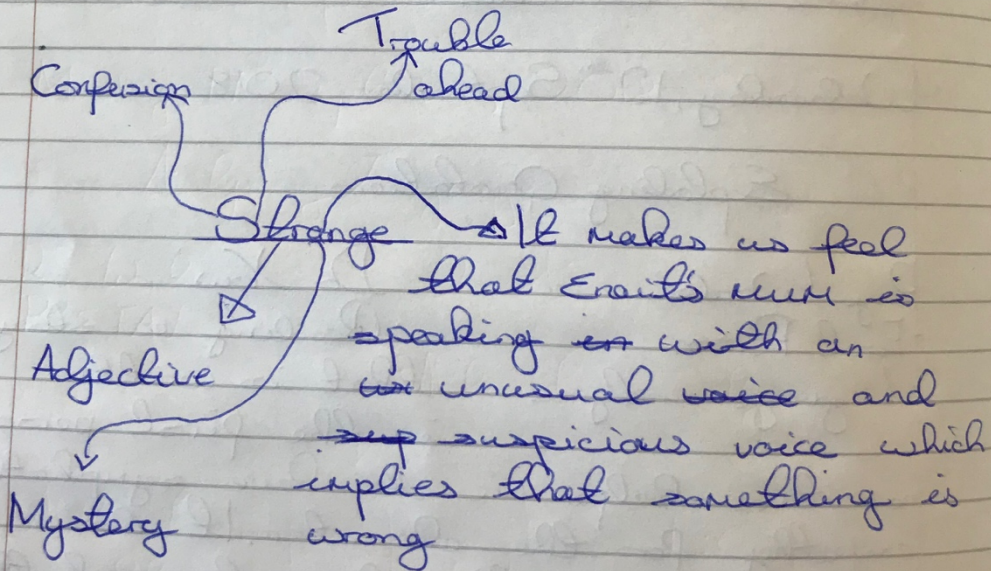 Trouble
ahead
Confusion
Strange
It makes us feel
that Enait's mum is
speaking in with an
unusual voice and
sup suspicious voice which
implies that something is
wrong
Adjective
Mystery